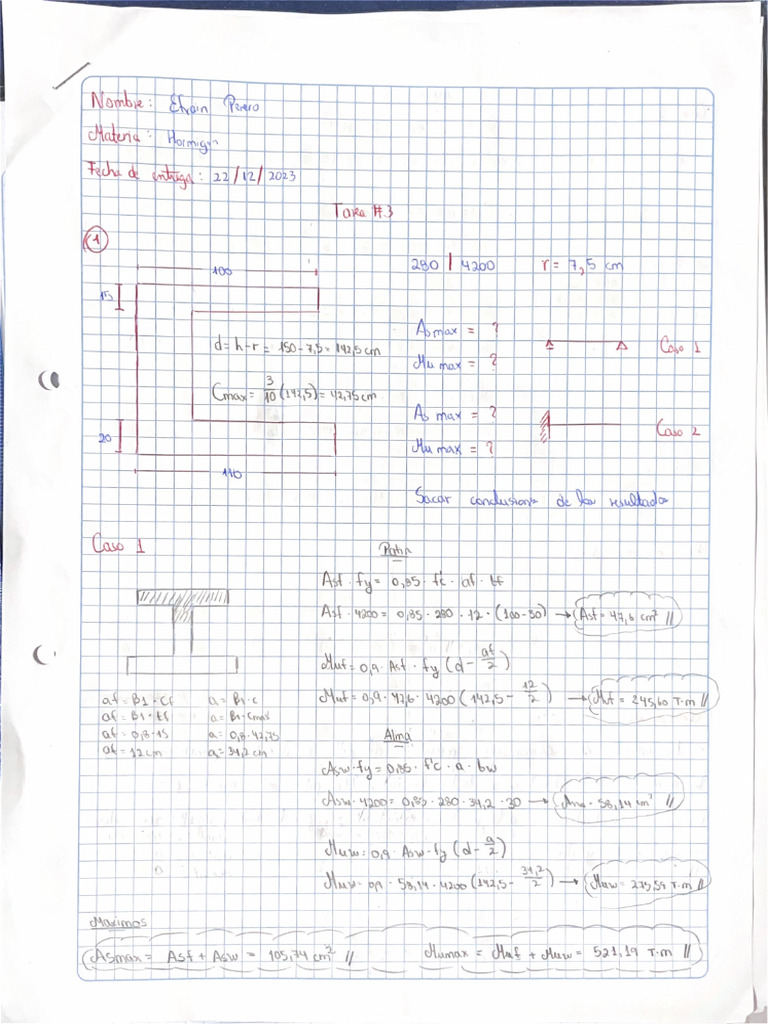 Nombre: Efrain Perero
Materia: Hormigon
Fecha de entrega: 22/12/2023
Tarea #3
1
100
280 | 4200 r = 7,5 cm
15
As max = ?
d = h-r = 150-7,5 = 142,5 cm
Caso 1
Mu max = ?
Cmax = 3/10 (142,5) = 42,75 cm
As max = ?
20
Caso 2
Mu max = ?
110
Sacar conclusiones de los resultados
Caso 1
Patin
Asf · fy = 0,85 · f'c · af · tf
Asf · 4200 = 0,85 · 280 · 12 · (100-30) → Asf = 47,6 cm² //
Muf = 0,9 · Asf · fy (d - af/2)
Muf = 0,9 · 47,6 · 4200 (142,5 - 12/2) → Muf = 245,60 T·m //
af = B1 · Cf a = B1 · c
af = B1 · tf a = B1 · Cmax
af = 0,8 · 15 a = 0,8 · 42,75
af = 12 cm a = 34,2 cm
Alma
Asw · fy = 0,85 · f'c · a · bw
Asw · 4200 = 0,85 · 280 · 34,2 · 30 → Asw = 58,14 cm² //
Muw = 0,9 · Asw · fy (d - a/2)
Muw = 0,9 · 58,14 · 4200 (142,5 - 34,2/2) → Muw = 275,59 T·m //
Maximos
Asmax = Asf + Asw = 105,74 cm² // Mumax = Muf + Muw = 521,19 T·m //